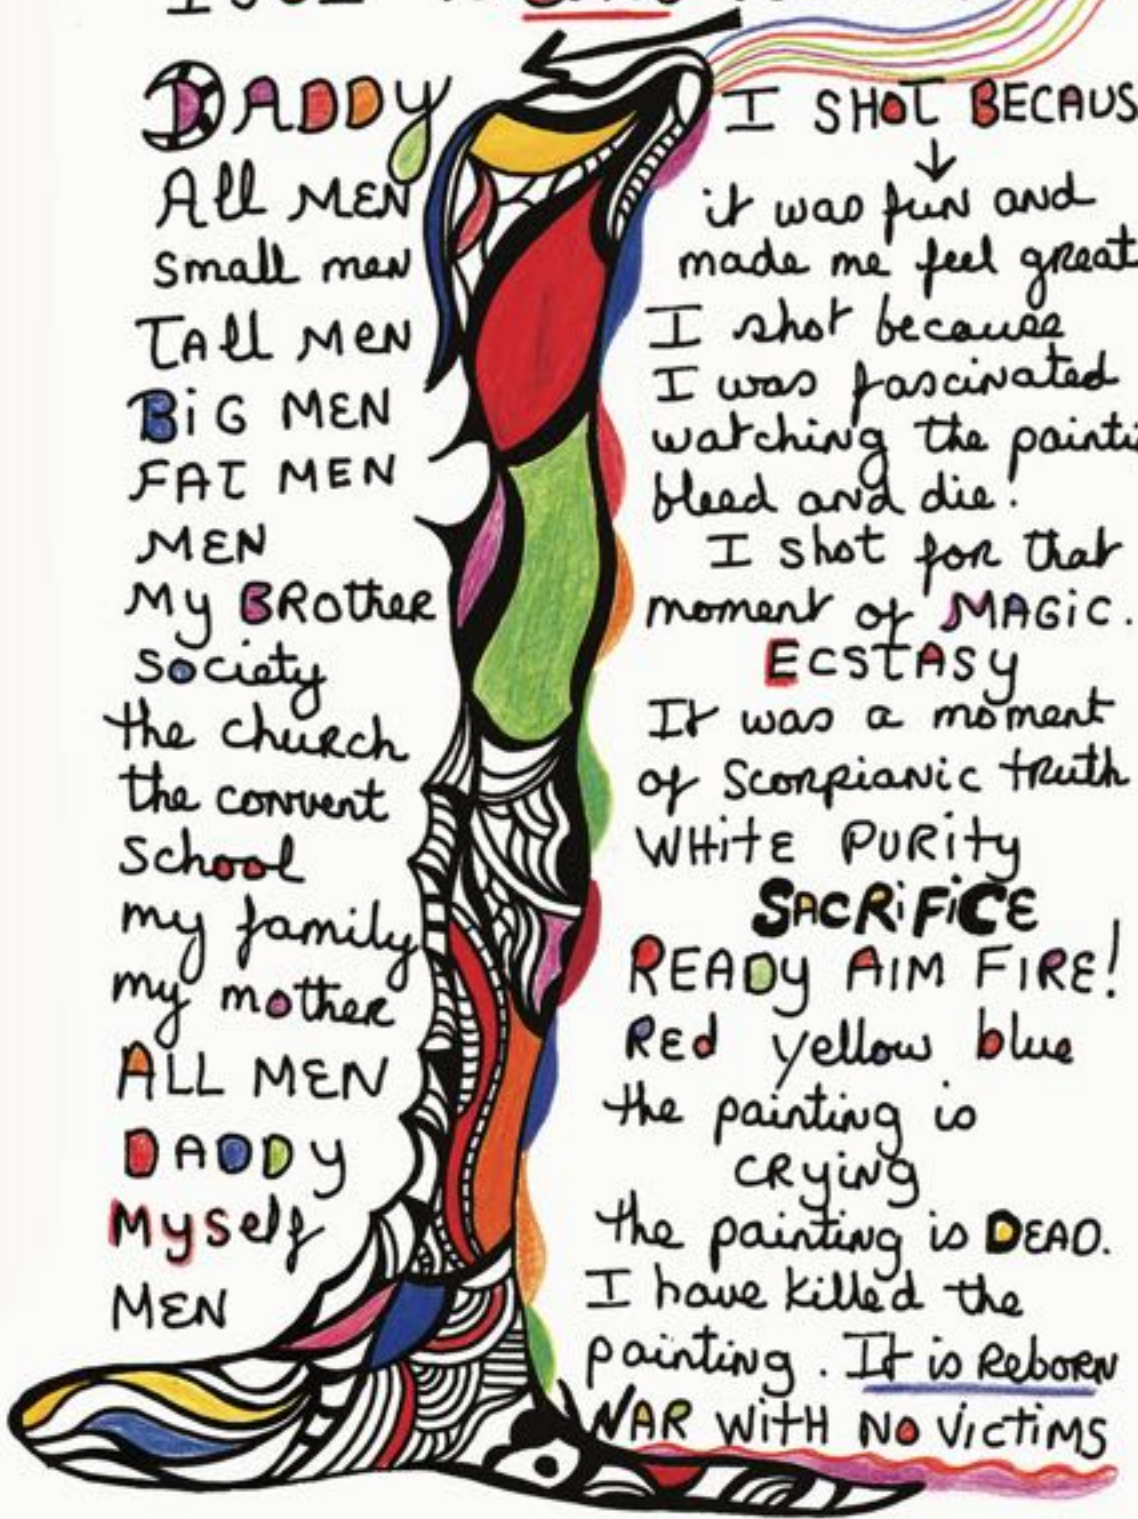 DADDY
All MEN
small men
TAll MEN
BiG MEN
FAT MEN
MEN
My BRother
society
the church
the convent
School
my family
my mother
ALL MEN
DADDY
Myself
MEN
I SHOT BECAUS
it was fun and
made me feel great
I shot because
I was fascinated
watching the painti
bleed and die!
I shot for that
moment of MAGiC.
ECSTASy
It was a moment
of Scorpianic truth
WHitE PURity
SACRiFiCE
READy AiM FiRE!
REd yellow blue
the painting is
CRying
the painting is DEAD.
I have killed the
painting. It is REBORN
WAR WitH NO ViCTiMS